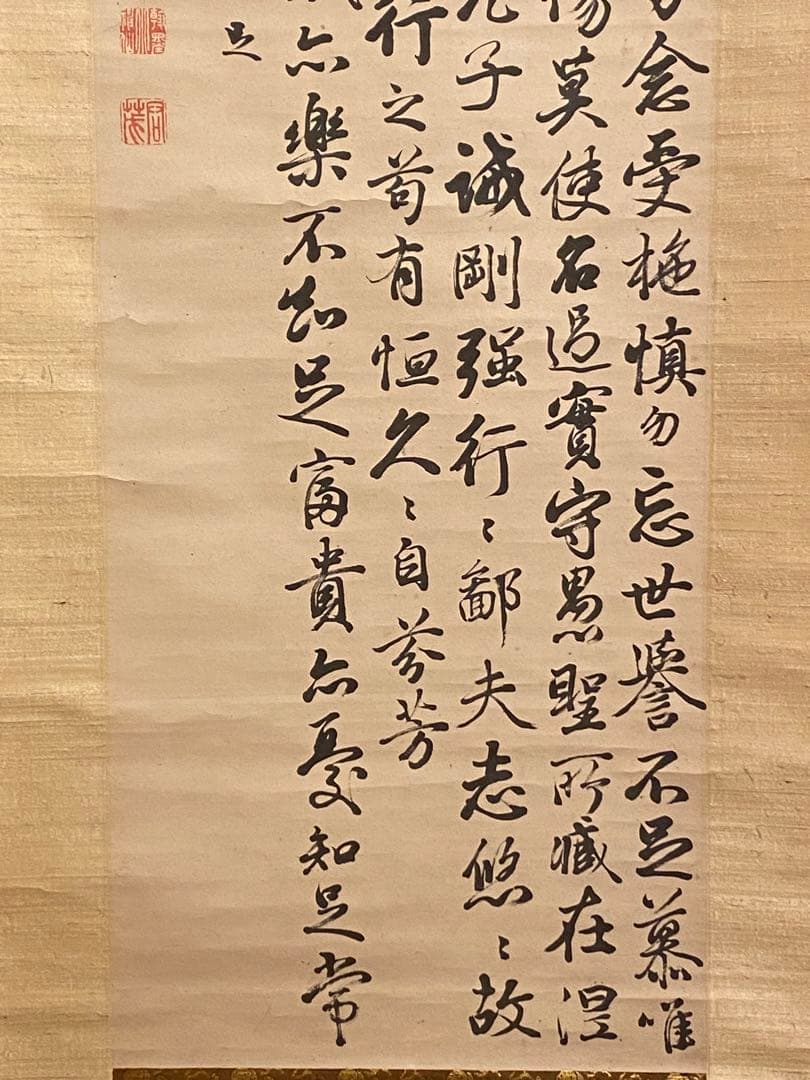 勿念受施慎勿忘世譽不足慕唯
傷莫使名過實守愚聖所臧在涅
老子誡剛强行〻鄙夫志悠〻故
行之苟有恒久〻自芬芳
亦樂不知足富貴亦憂知足常
足